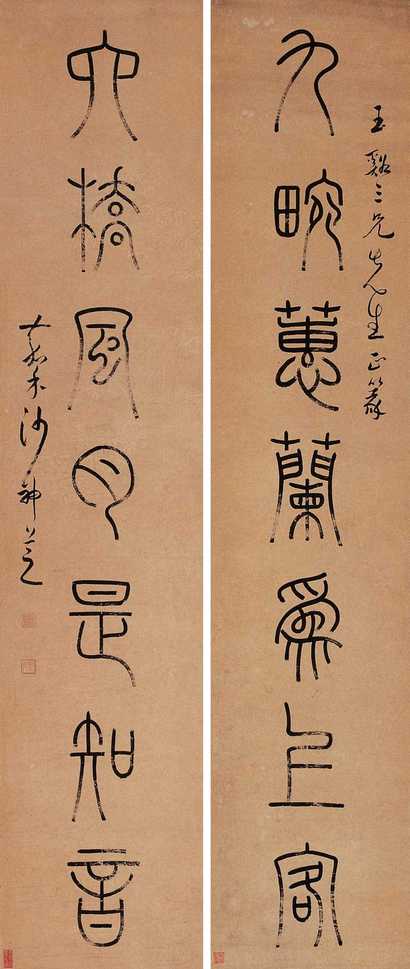 玉谿三兄先生正篆
九畹蕙蘭爲上客
六橋風月是知音
沙神芝